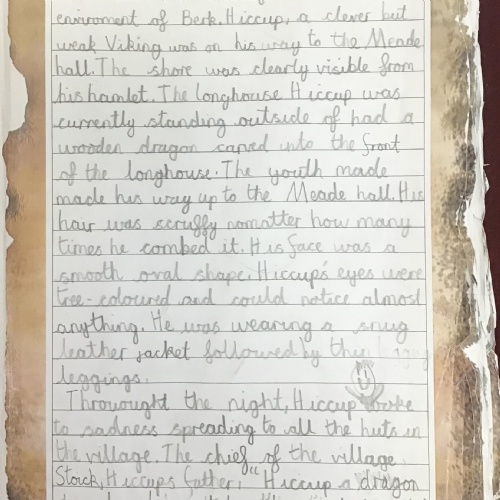 enviroment of Berk. Hiccup, a clever but
weak Viking was on his way to the Meade
hall. The shore was clearly visible from
his hamlet. The longhouse Hiccup was
currently standing outside of had a
wooden dragon carved into the front
of the longhouse. The youth made
made his way up to the Meade hall. His
hair was scruffy nomatter how many
times he combed it. His face was a
smooth oval shape. Hiccup's eyes were
tree-coloured and could notice almost
anything. He was wearing a snug
leather jacket followed by thin
leggings.
Throwought the night, Hiccup woke
to sadness spreading to all the huts in
the village. The chief of the village
Stoick, Hiccups father, "Hiccup a dragon